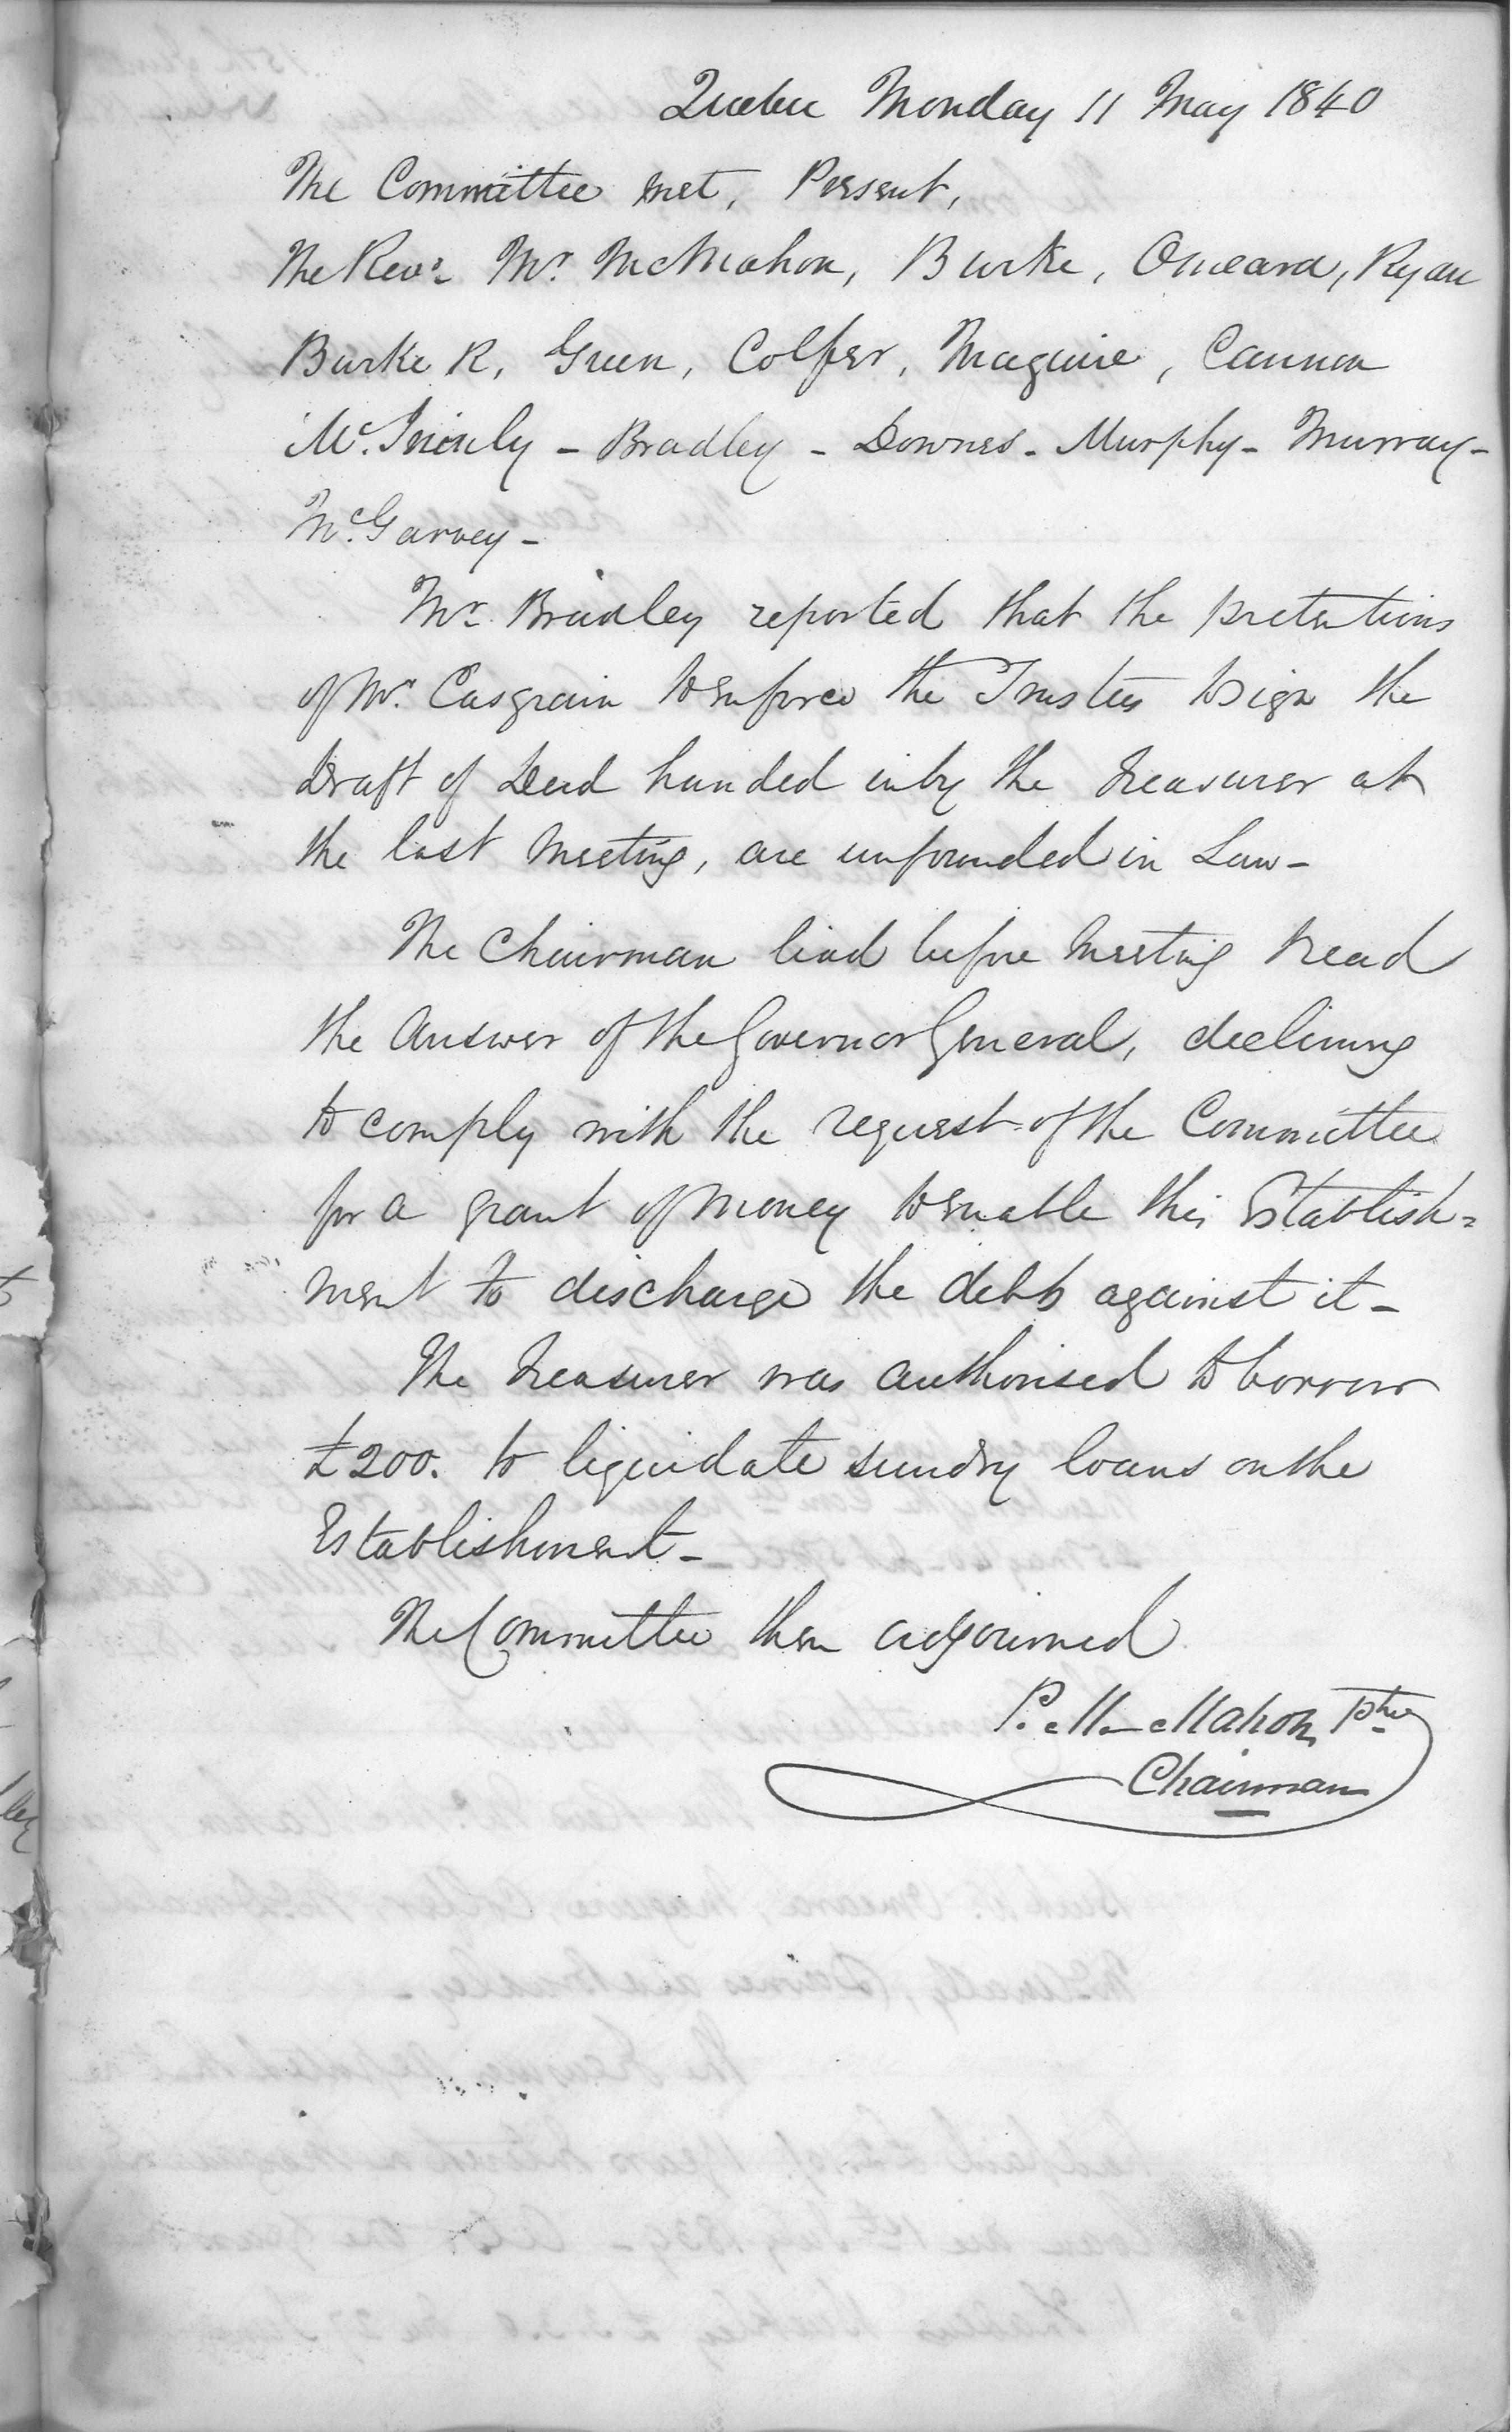 Quebec Monday 11 May 1840
The Committee met, Present,
The Revd. Mr. McMahon, Burke, Omeara, Ryan
Burke R, Green, Colfer, Maguire, Cannon
Mc. - Bradley - Downes - Murphy - Murray -
McGarvey -
Mr. Bradley reported that the pretentions
of Mr. Casgrain to enforce the Trustees to sign the
Draft of Deed handed in by the Treasurer at
the last Meeting, are unfounded in Law -
The Chairman liad before Meeting & read
the Answer of the Governor General, declining
to comply with the request of the Committee
for a grant of Money to enable this Establish=
ment to discharge the debts against it -
The Treasurer was authorised to borrow
£200. to liquidate sundry loans on the
Establishment -
The Committee then adjourned
P. McMahon Ptre
Chairman